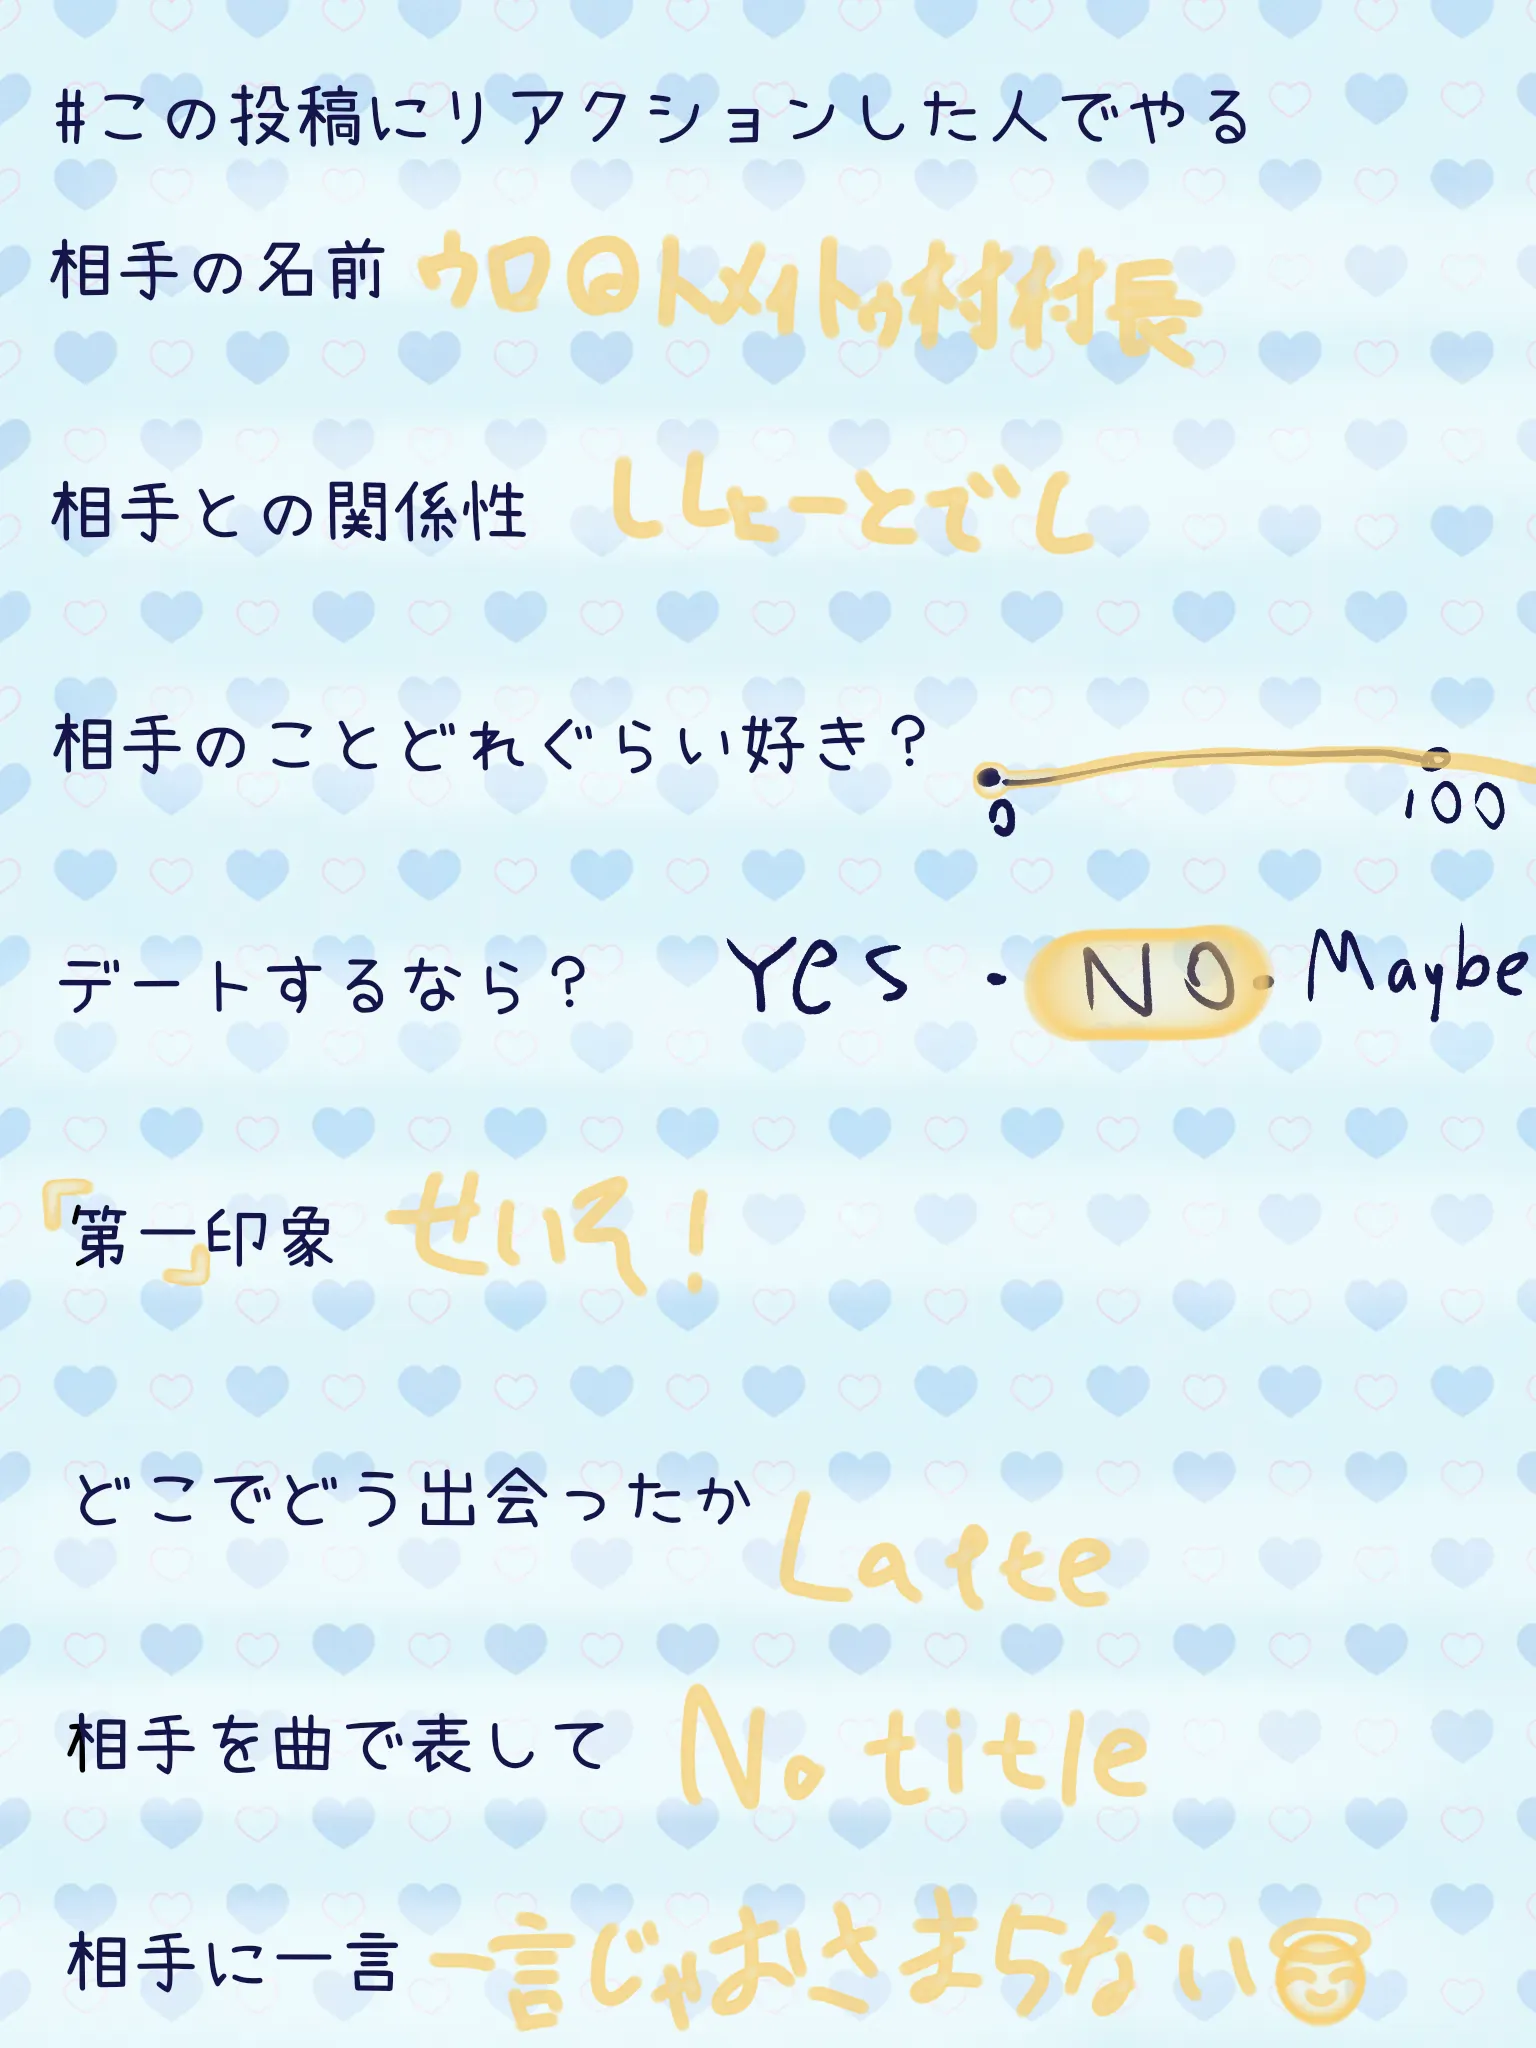 #この投稿にリアクションした人でやる
相手の名前 ウロ トメィトゥ村村長
相手との関係性 ししょーとでし
相手のことどれぐらい好き？
0 100
デートするなら？ Yes・NO・Maybe
『第一』印象 せいそ！
どこでどう出会ったか
相手を曲で表して No title
相手に一言 一言じゃおさまらない😇